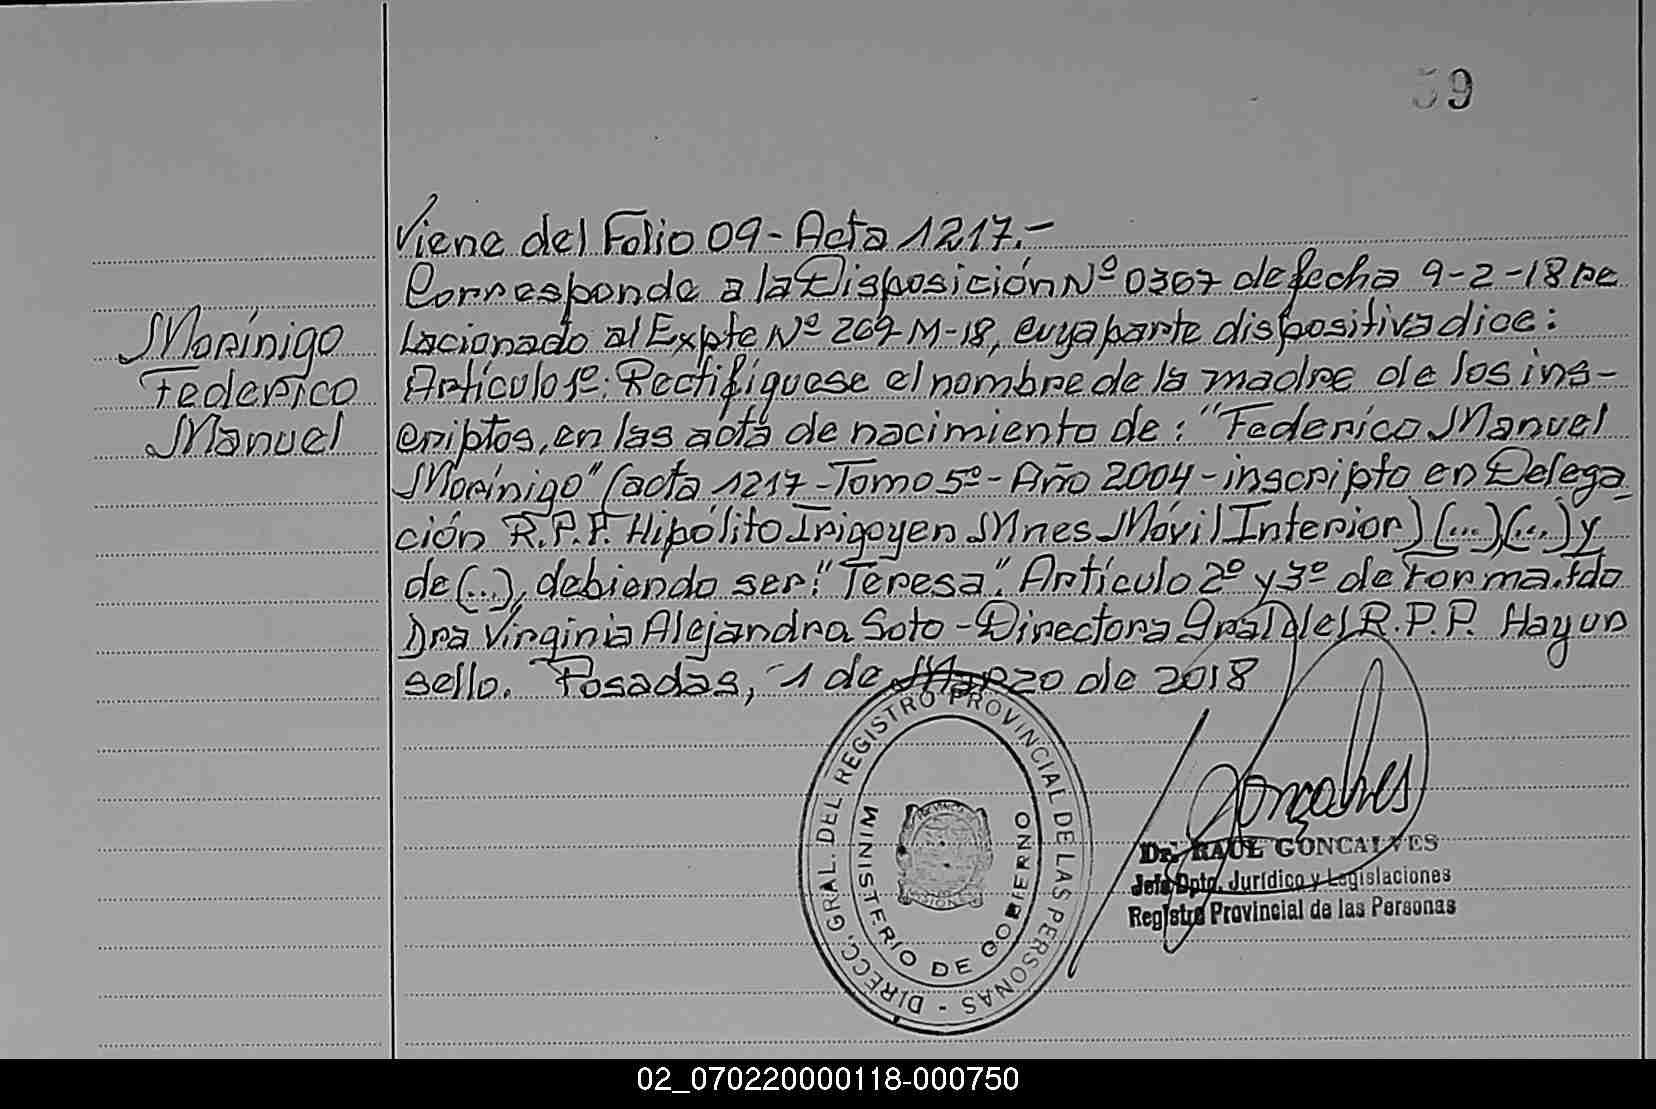 59
Viene del Folio 09 - Acta 1217.-
Corresponde a la Disposición Nº 0367 de fecha 9-2-18 Re
lacionado al Expte Nº 269-M-18, cuya parte dispositiva dice:
Artículo 1º: Rectifíquese el nombre de la madre de los ins-
criptos, en las acta de nacimiento de: "Federico Manuel
Morínigo" (acta 1217 - Tomo 5º - Año 2004 - inscripto en Delega
ción R.P.P. Hipólito Irigoyen Mnes Móvil Interior) (...), (...) y
de (...), debiendo ser: "Teresa". Artículo 2º y 3º de forma. fdo
Dra Virginia Alejandra Soto - Directora Gral del R.P.P. Hay un
sello. Posadas, 1 de Marzo de 2018
Morínigo
Federico
Manuel
DIRECC. GRAL. DEL REGISTRO PROVINCIAL DE LAS PERSONAS -
MINISTERIO DE GOBIERNO
Goncalves
Dr. RAUL GONCALVES
Jefe Dpto. Jurídico y Legislaciones
Registro Provincial de las Personas
02_070220000118-000750